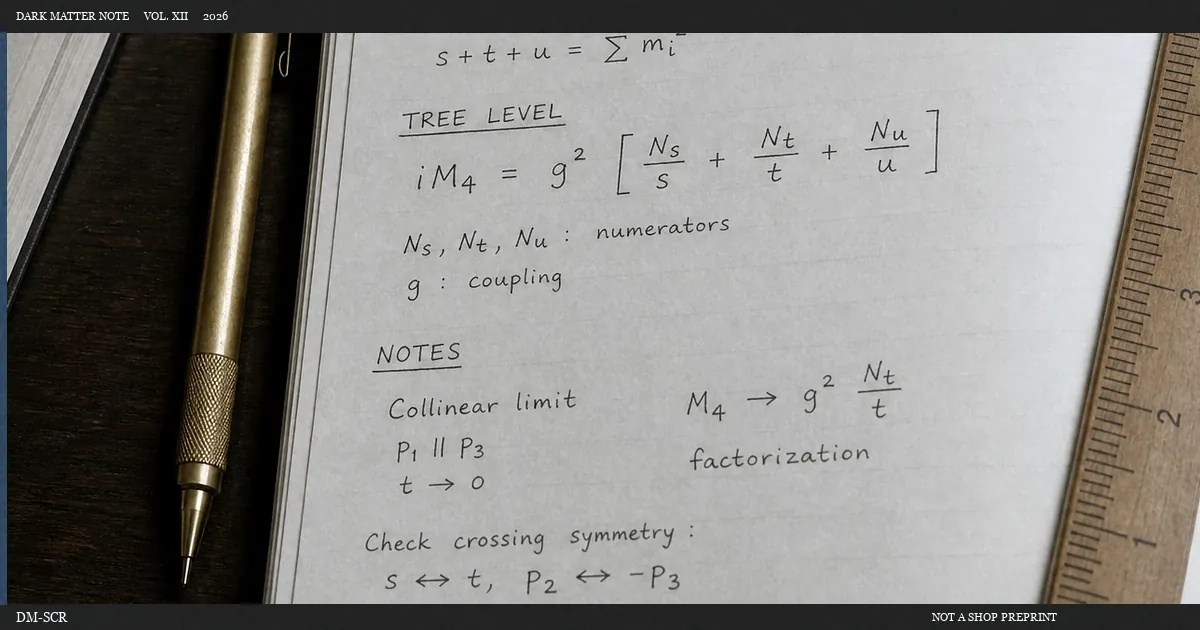 DARK MATTER NOTE VOL. XII 2026
s + t + u = ∑ mᵢ²
TREE LEVEL
iM₄ = g² [ Nₛ/s + Nₜ/t + Nᵤ/u ]
Nₛ, Nₜ, Nᵤ : numerators
g : coupling
NOTES
Collinear limit
P₁ || P₃
t → 0
M₄ → g² Nₜ/t
factorization
Check crossing symmetry :
s ↔ t, P₂ ↔ -P₃
3
2
1
DM-SCR
NOT A SHOP PREPRINT